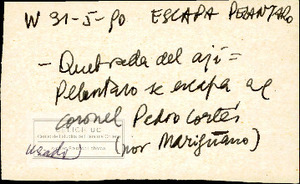 W 31-5-90 ESCAPA PELANTARO
- Quebrada del ají =
Pelantaro se escapa al
coronel Pedro Cortés
usado) (por Mariguano)